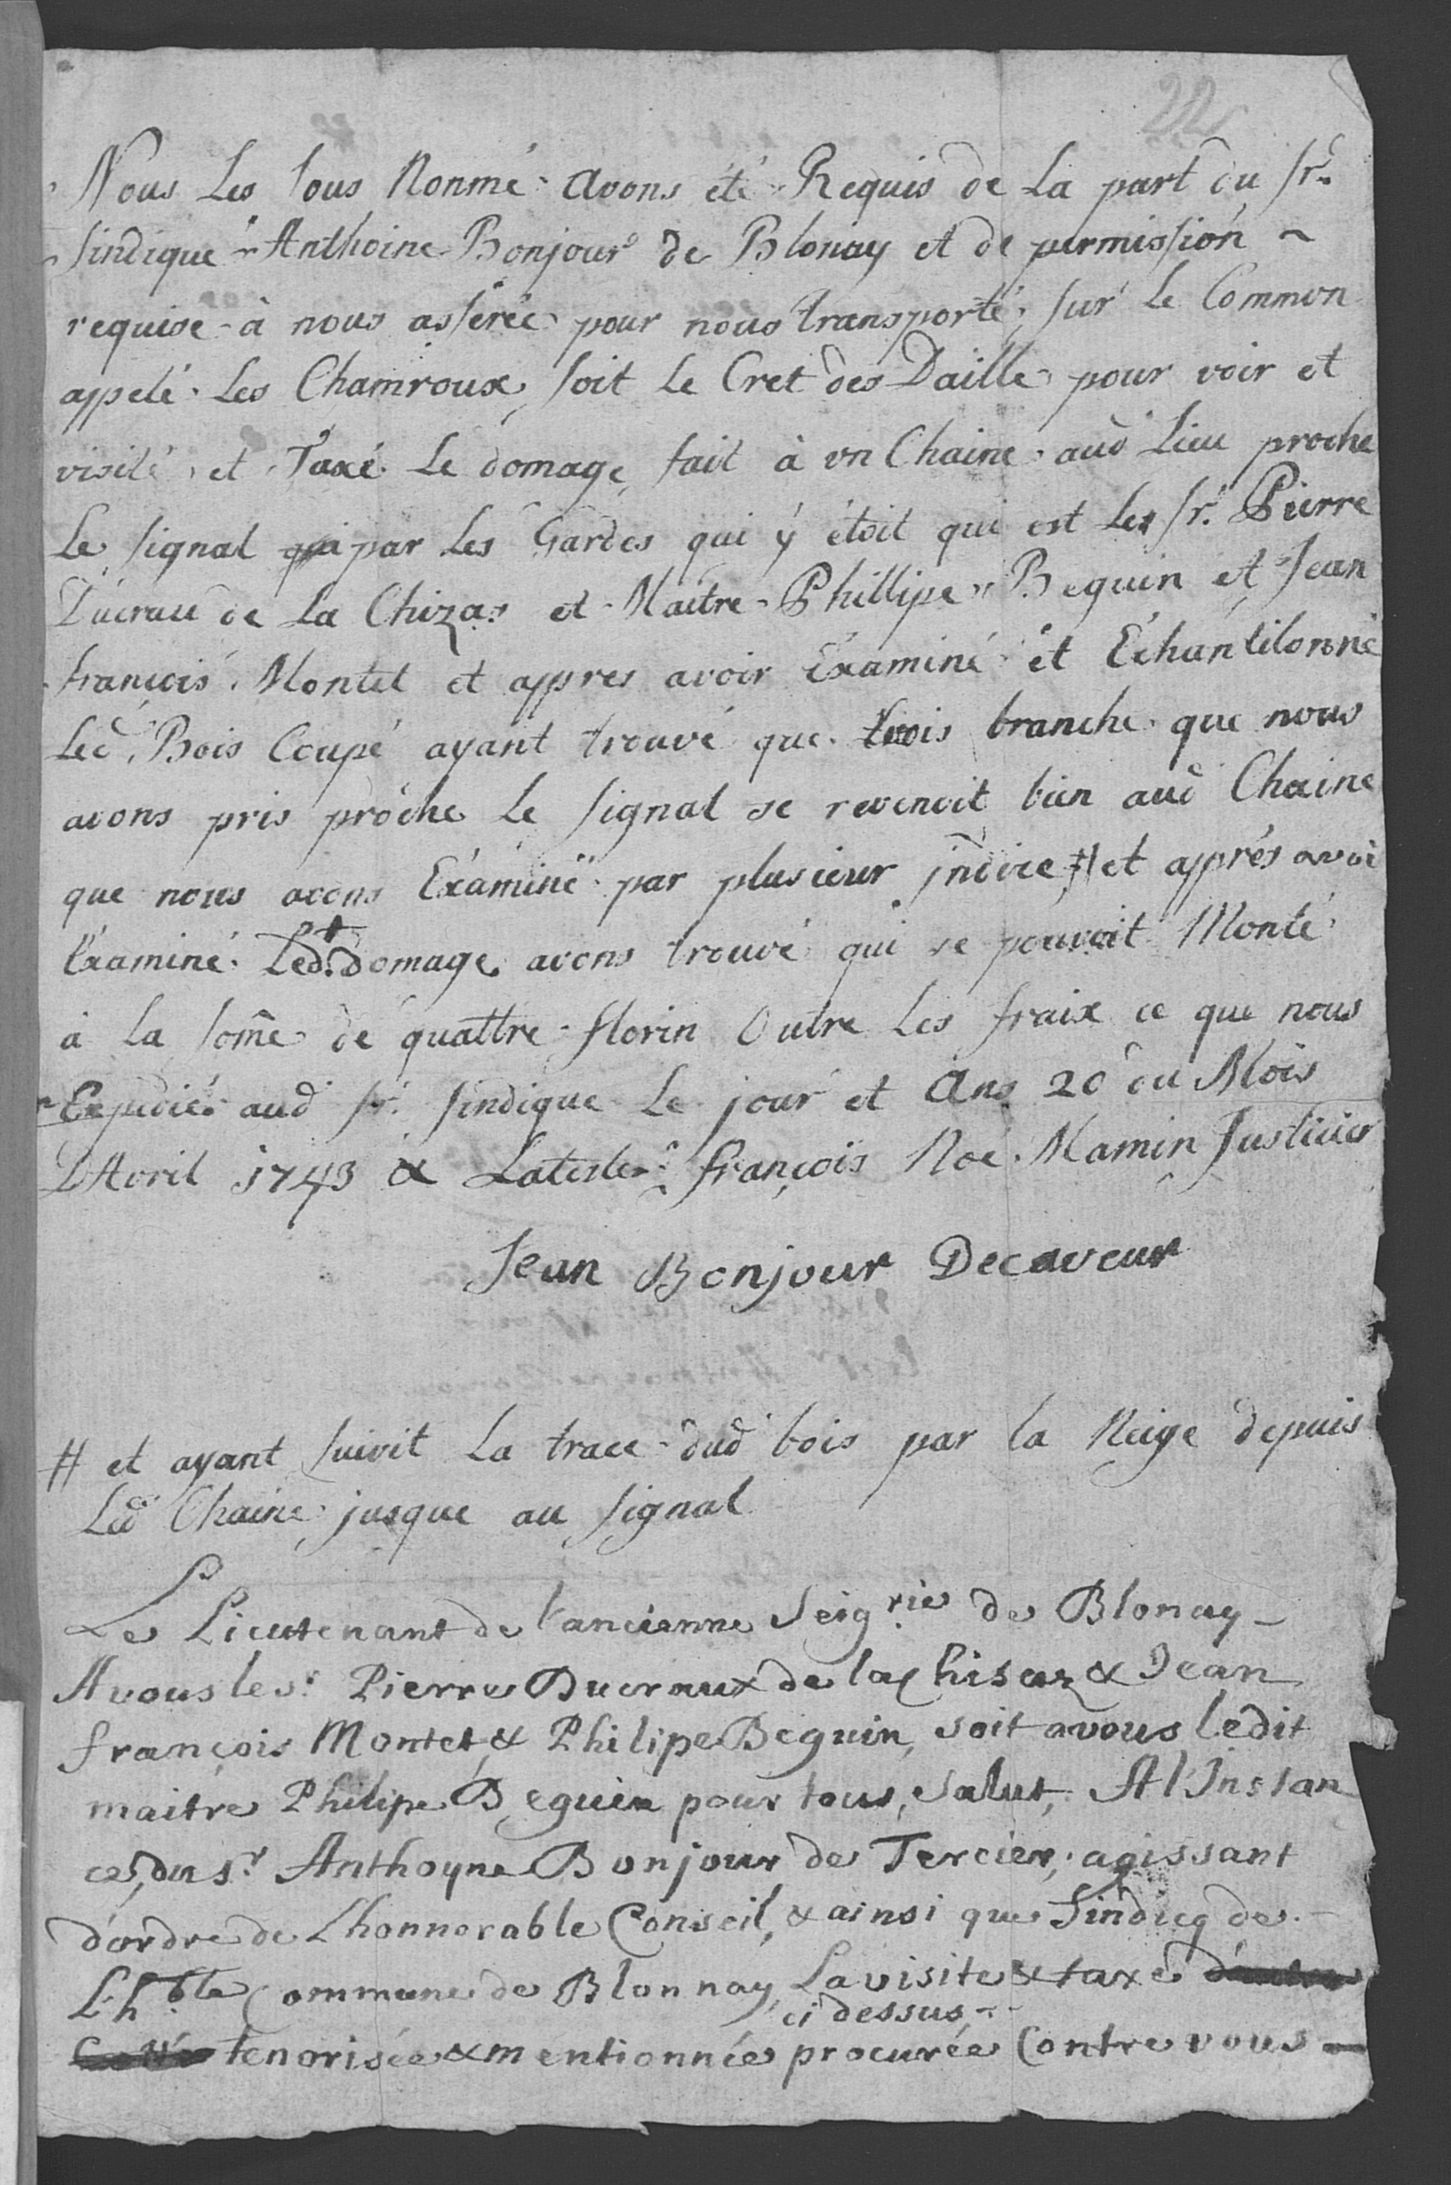 22
Nous Les sous Nonmé avons été Requis de La part du Sr.
Sindique Anthoine Bonjour de Blonay et de permission ~
requise à nous asserée pour nous transporté sur Le Common
appelé Les Chamroux soit Le Cret des Daille pour voir et
visité et Taxé Le domage fait à vn Chaine aud Lieu proche
Le signal par Les Gardes qui y étoit qui est Les Sr. Pierre
Ducrau de La Chiza et Maitre Phillipe Beguin et Jean
françois Montet et appres avoir Examiné et Echantilonné
Led. Bois Coupé ayant trouvé que trois branche que nous
avons pris proche Le signal se revenoit bien aud Chaine
que nous avons Examiné par plusieur jndice # et apprés avoi
Examiné Led. domage avons trouvé qui se pouvoit Monté
à La some de quattre florin Outre Les fraix ce que nous
Expedié aud Sr. Sindique Le jour et Ans 20 du Mois
DAvril 1743 & Lateste françois Noé Mamin Justicier
Jean Bonjour Decaveur
# et ayant suivit La trace dud bois par la Neige depuis
Led Chaine jusque au signal
Le Lieutenant de l'ancienne Seigrie de Blonay
A vous les Pierre Ducraux de la Chisaz & Jean
françois Montet & Philipe Beguin, soit a vous ledit
maitre Philipe Beguin pour tous, Salut, A l'Instan
ce, du Sr Anthoyne Bonjour de Tercier, agissant
d'ordre de Lhonnorable Conseil, & ainsi que Sindicq de
L'hble Commune de Blonnay, La visite & taxe
ci dessus
tenorisée & mentionnée procurée Contre vous